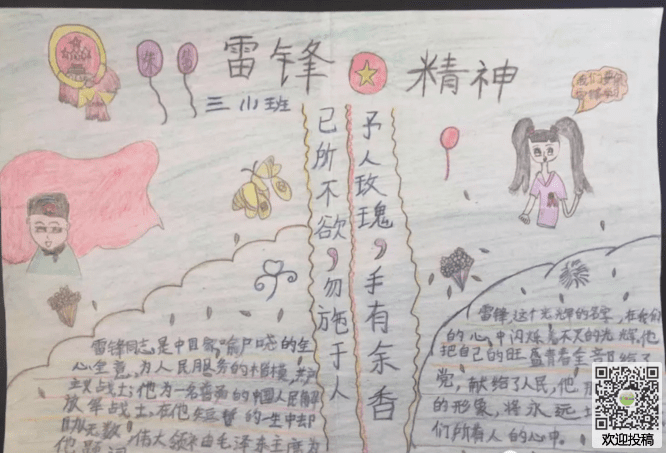 雷锋
精神
三小班
予人玫瑰,手有余香
己所不欲,勿施于人
雷锋同志是中国家喻户晓的全
心全意,为人民服务的楷模,共产
主义战士;他为一名普通的中国人民解
放军战士,在他短暂的一生中却
助无数,伟大领袖毛泽东主席为
他题词
雷锋,这个光辉的名字,在我们
的心中闪烁着不灭的光辉,他
把自己的旺盛青春全部给了
党,献给了人民,他
的形象,将永远
们所有人的心中。
欢迎投稿